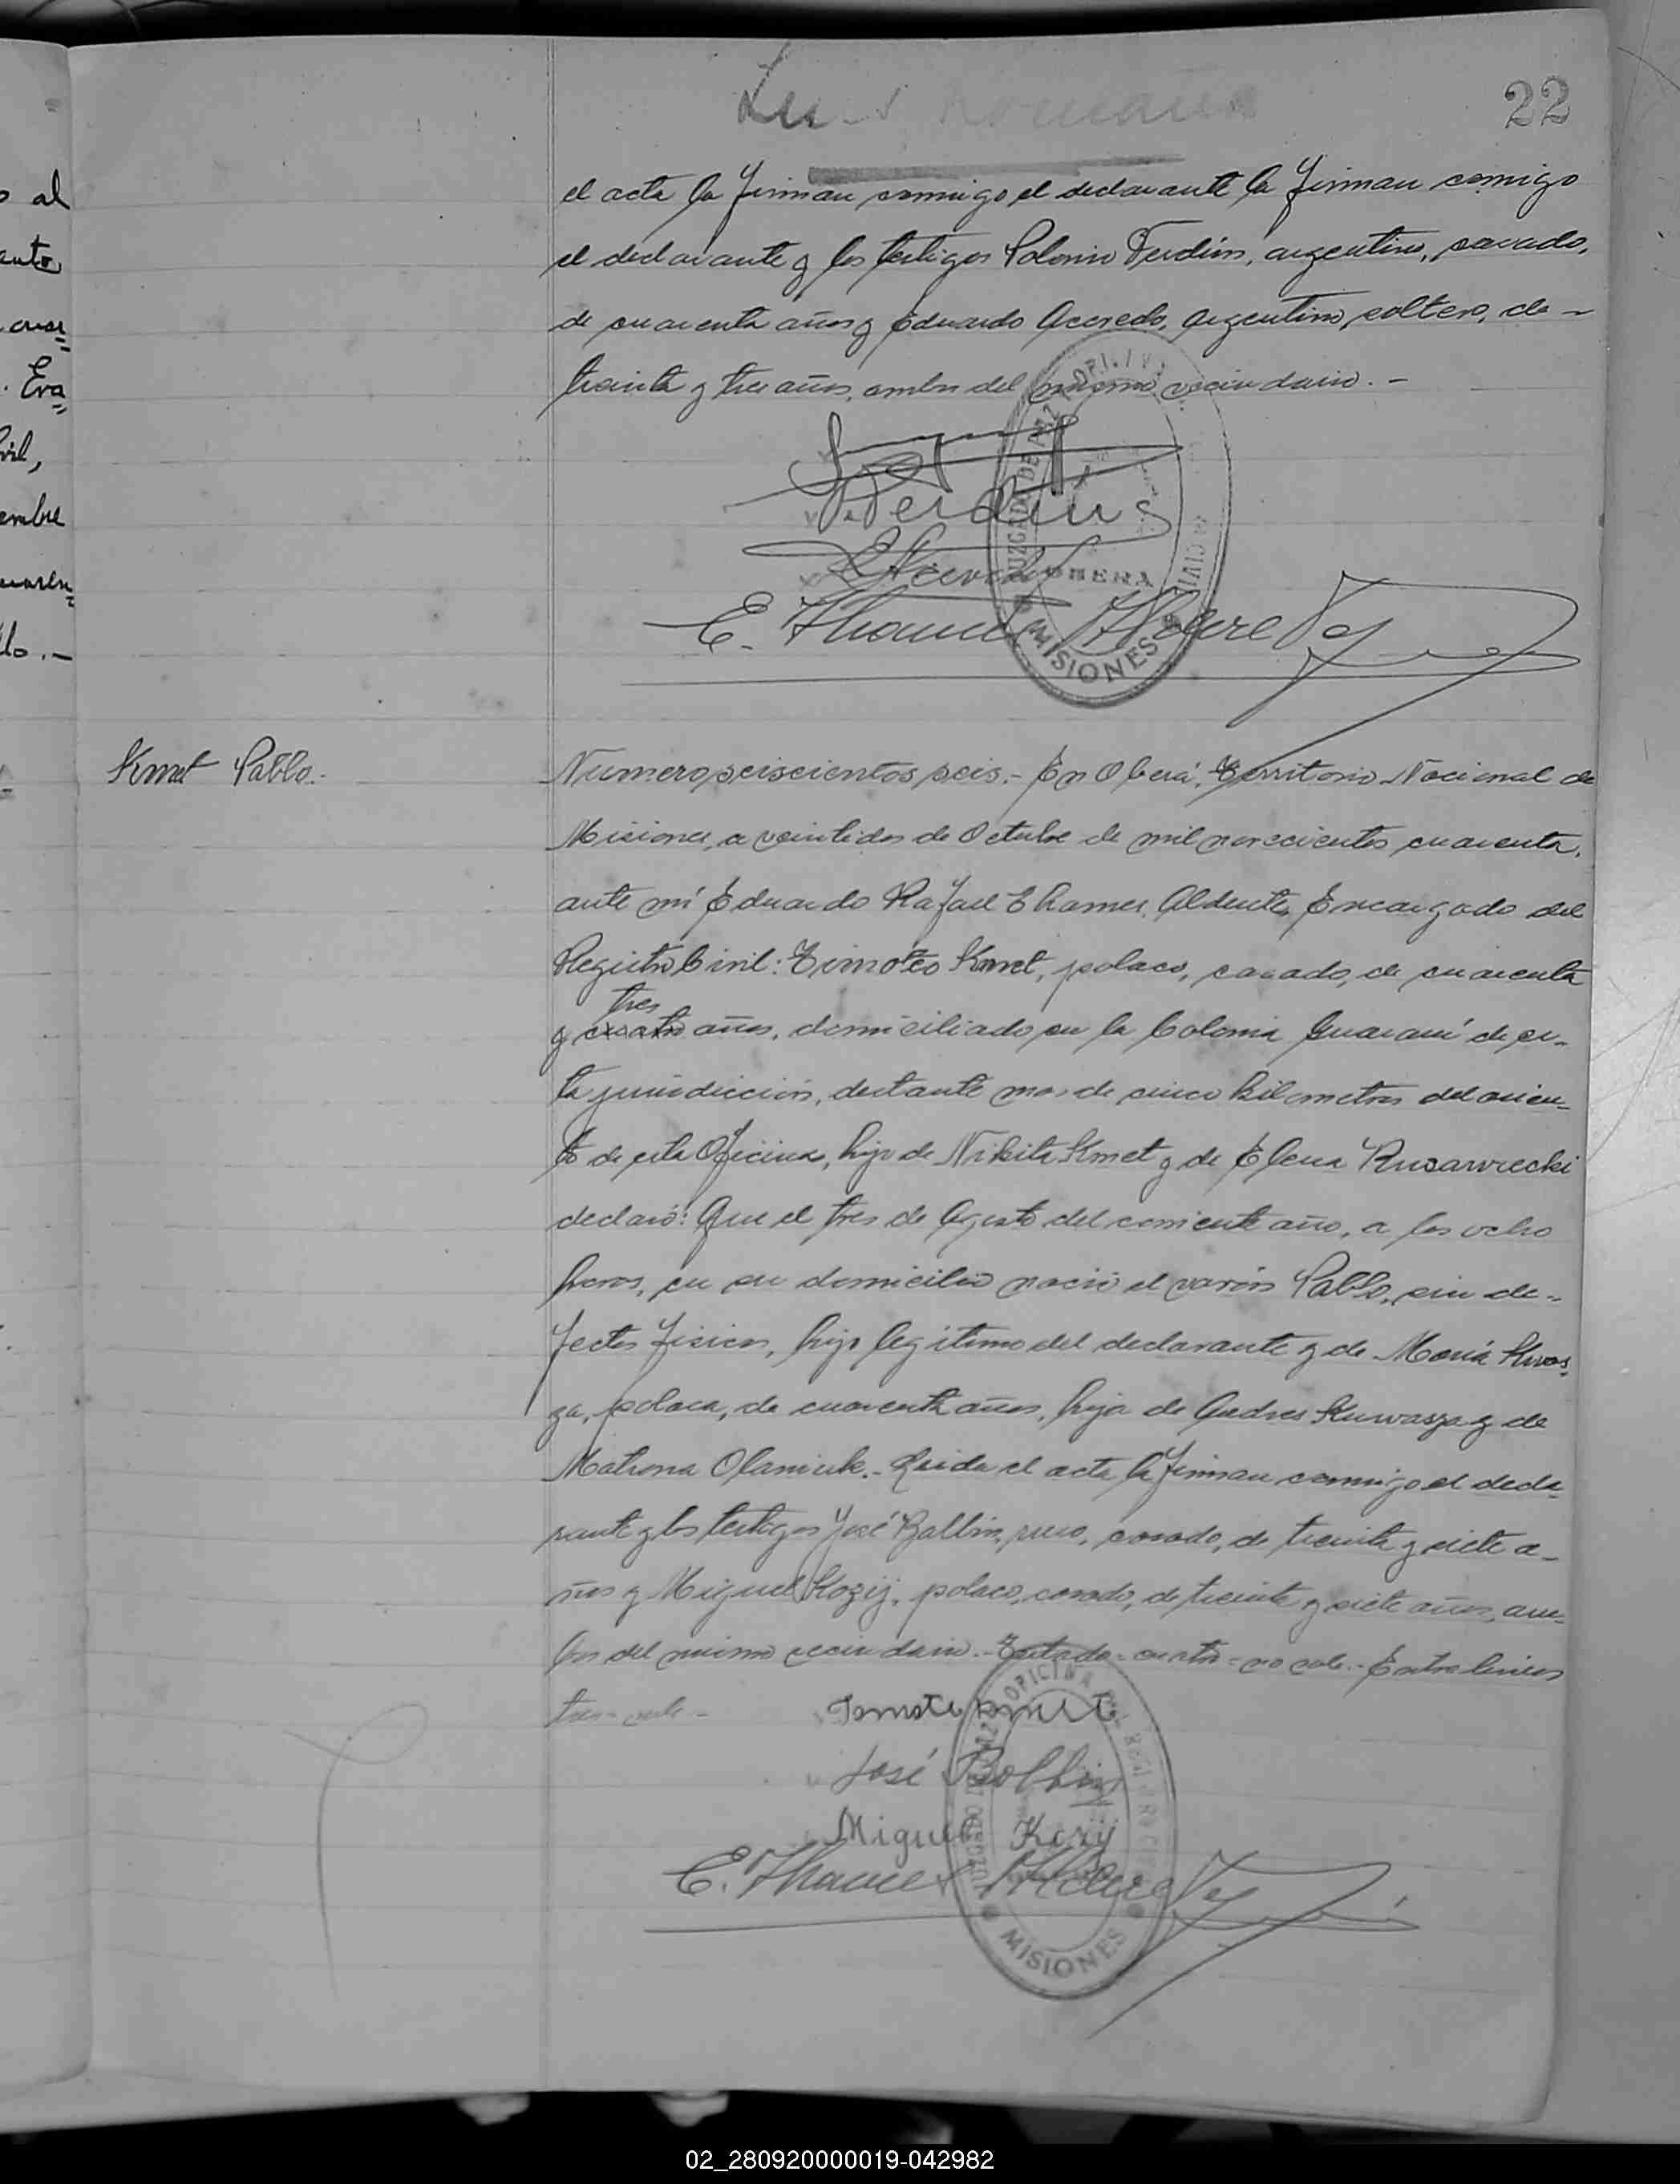 22
el acta la firman conmigo el declarante la firman comigo
el declarante y los testigos Polonio Verdún, argentino, casado,
de cuarenta años y Eduardo Acevedo, argentino, soltero, de -
treinta y tres años, ambos del mismo vecindario. -
Verdún
E. Acevedo
OBERA
MISIONES
E. Thamer Alderete
Kmet Pablo.-
Numero seiscientos seis.- En Oberá, Territorio Nacional de
Misiones, a veintidos de Octubre de mil novecientos cuarenta,
ante mí Eduardo Rafael Thamer Alderete, Encargado del
Registro Civil: Timoteo Kmet, polaco, casado, de cuarenta
tres
y cuatro años, domiciliado en la Colonia Guaraní de es-
ta jurisdicción, distante mas de cinco kilometros del asien-
to de esta Oficina, hijo de Nikita Kmet y de Elena Rusawiecki
declaró: Que el tres de Agosto del corriente año, a las ocho
horas, en su domicilio nació el varón Pablo, sin de-
fectos fisicos, hijo legitimo del declarante y de María Kuvas
za, polaca, de cuarenta años, hija de Andres Kuwasza y de
Matrona Olaniuk.- Leida el acta la firman conmigo el decla-
rante y los testigos José Balbin, ruso, casado, de treinta y siete a-
ños y Miguel Kozij, polaco, casado, de treinta y siete años, am-
bos del mismo vecindario.- Testado = cuatro = no vale.- Entre lineas
tres - vale -
José Bolbin
Miguel Kozij
E. Thamer Alderete
MISIONES
al
Era
vil,
embre
02_280920000019-042982